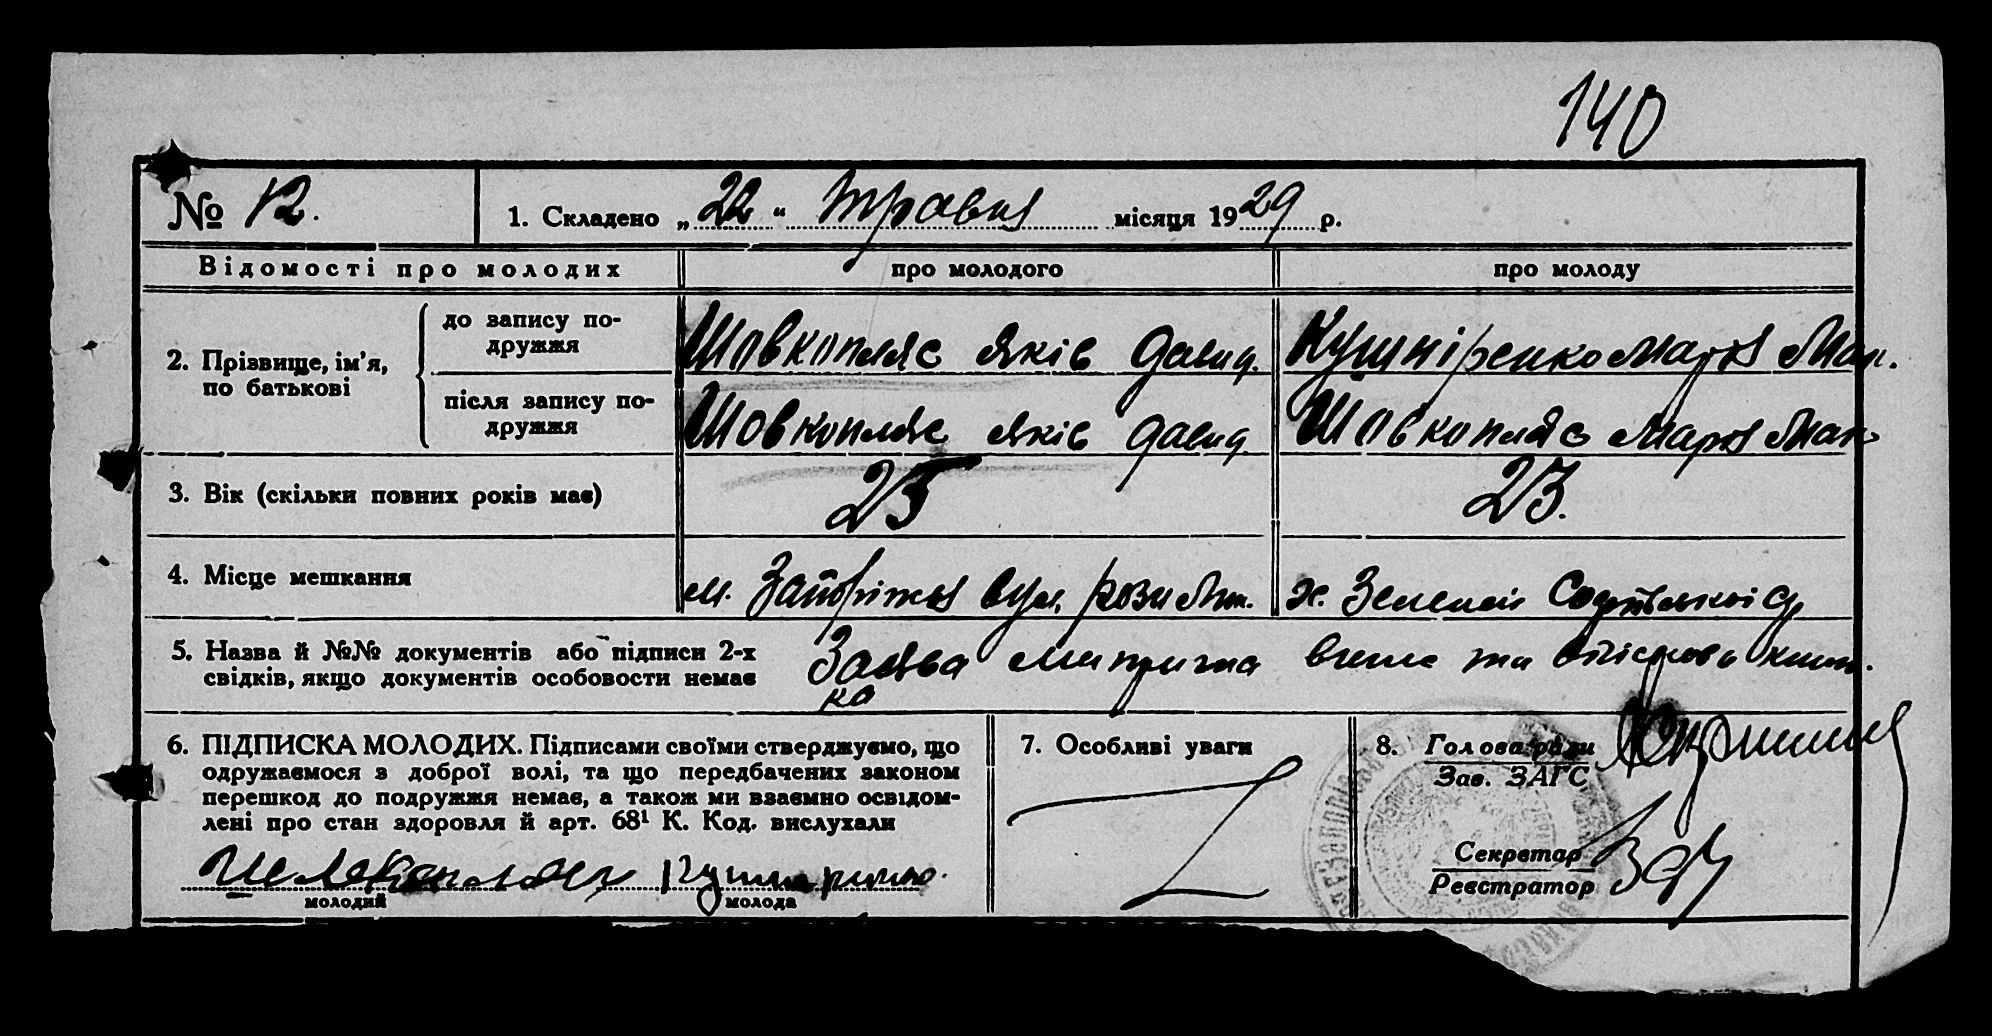 140
№ 12. 1. Складено „22“ травня місяця 1929 р.
Відомості про молодих про молодого про молоду
2. Прізвище, ім’я, по батькові
до запису по-
дружжя
Шовкопляс Яків Давид. Кушніренко Марія Мак.
після запису по-
дружжя
Шовкопляс Яків Давид. Шовкопляс Марія Мак.
3. Вік (скільки повних років має) 25 23.
4. Місце мешкання м. Запоріжжя вул. Рози Люк. х. Зелений
5. Назва й №№ документів або підписи 2-х
свідків, якщо документів особовости немає
Заява
ка
та книж.
6. ПІДПИСКА МОЛОДИХ. Підписами своїми стверджуємо, що
одружаємося з доброї волі, та що передбачених законом
перешкод до подружжя немає, а також ми взаємно освідом-
лені про стан здоровля й арт. 68¹ К. Код. вислухали
молодий молода
7. Особливі уваги
8. Голова ради
Зав. ЗАГС
Секретар
Реєстратор